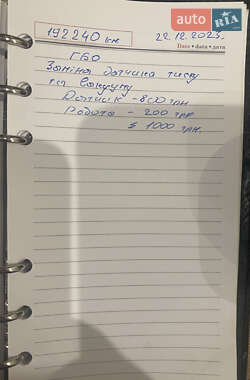 auto
RIA
192240 км
22.12.2023.
Date • data • дата
ГБО
Заміна датчика тиску
Датчик - 800 грн
Робота - 200 грн
1000 грн.